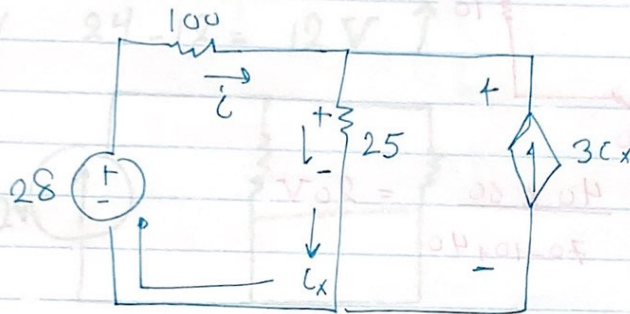 100
i
+
-
25
28
+
-
ix
+
-
3ix